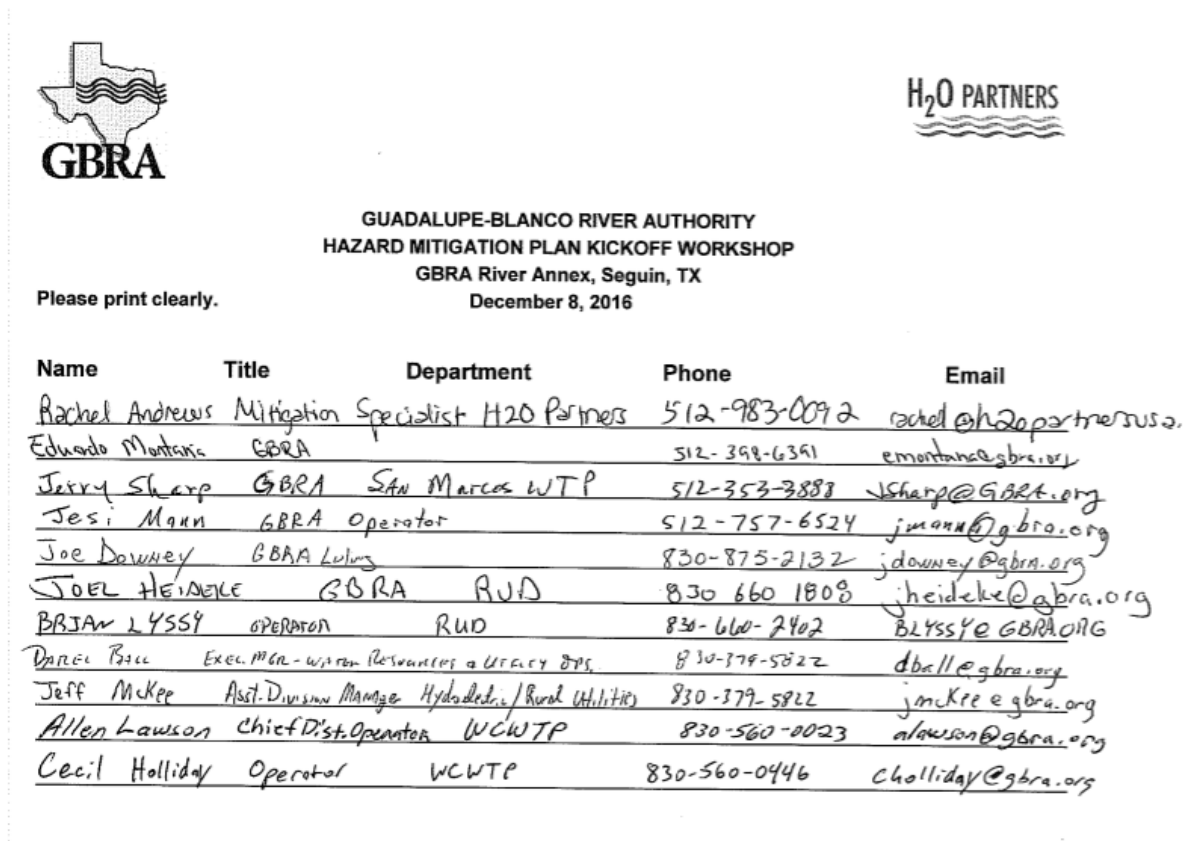 GBRA
H2O PARTNERS
GUADALUPE-BLANCO RIVER AUTHORITY
HAZARD MITIGATION PLAN KICKOFF WORKSHOP
GBRA River Annex, Seguin, TX
Please print clearly. December 8, 2016
Name Title Department Phone Email
Rachel Andrews Mitigation Specialist H2O Partners 512-983-0092 rachel@h2opartnersusa.
Eduardo Montana GBRA 512-398-6391 emontana@gbra.org
Jerry Sharp GBRA SAN Marcos WTP 512-353-3888 JSharp@GBRA.org
Jesi Mann GBRA Operator 512-757-6524 jmann@gbra.org
Joe Downey GBRA Luling 830-875-2132 jdowney@gbra.org
JOEL HEIDEKE GBRA RUD 830 660 1808 jheideke@gbra.org
BRIAN LYSSY OPERATOR RUD 830-660-2402 BLYSSY@GBRAORG
DAREL BALL EXEC. MGR-WATER Resources & UTILITY OPS. 830-379-5822 dball@gbra.org
Jeff McKee Asst. Division Manager Hydroelectric/Rural Utilities 830-379-5822 jmcKee@gbra.org
Allen Lawson Chief Dist. Operator WCWTP 830-560-0023 alawson@gbra.org
Cecil Holliday Operator WCWTP 830-560-0446 cholliday@gbra.org